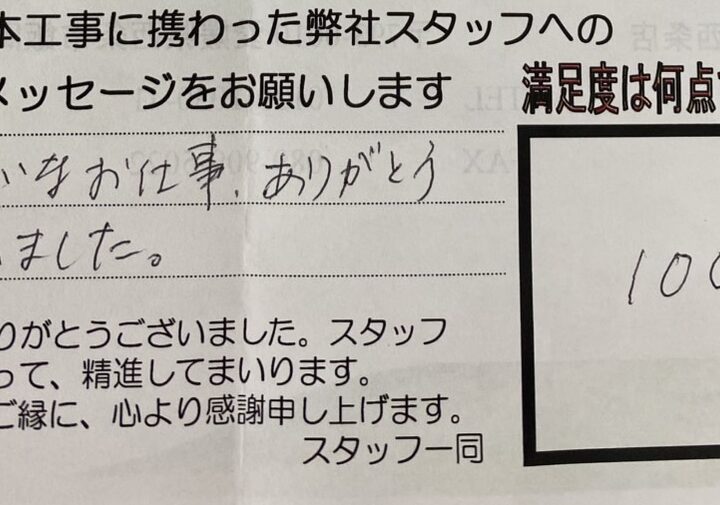 本工事に携わった弊社スタッフへの
メッセージをお願いします
満足度は何点
いなお仕事、ありがとう
いました。
100
りがとうございました。スタッフ
って、精進してまいります。
ご縁に、心より感謝申し上げます。
スタッフ一同